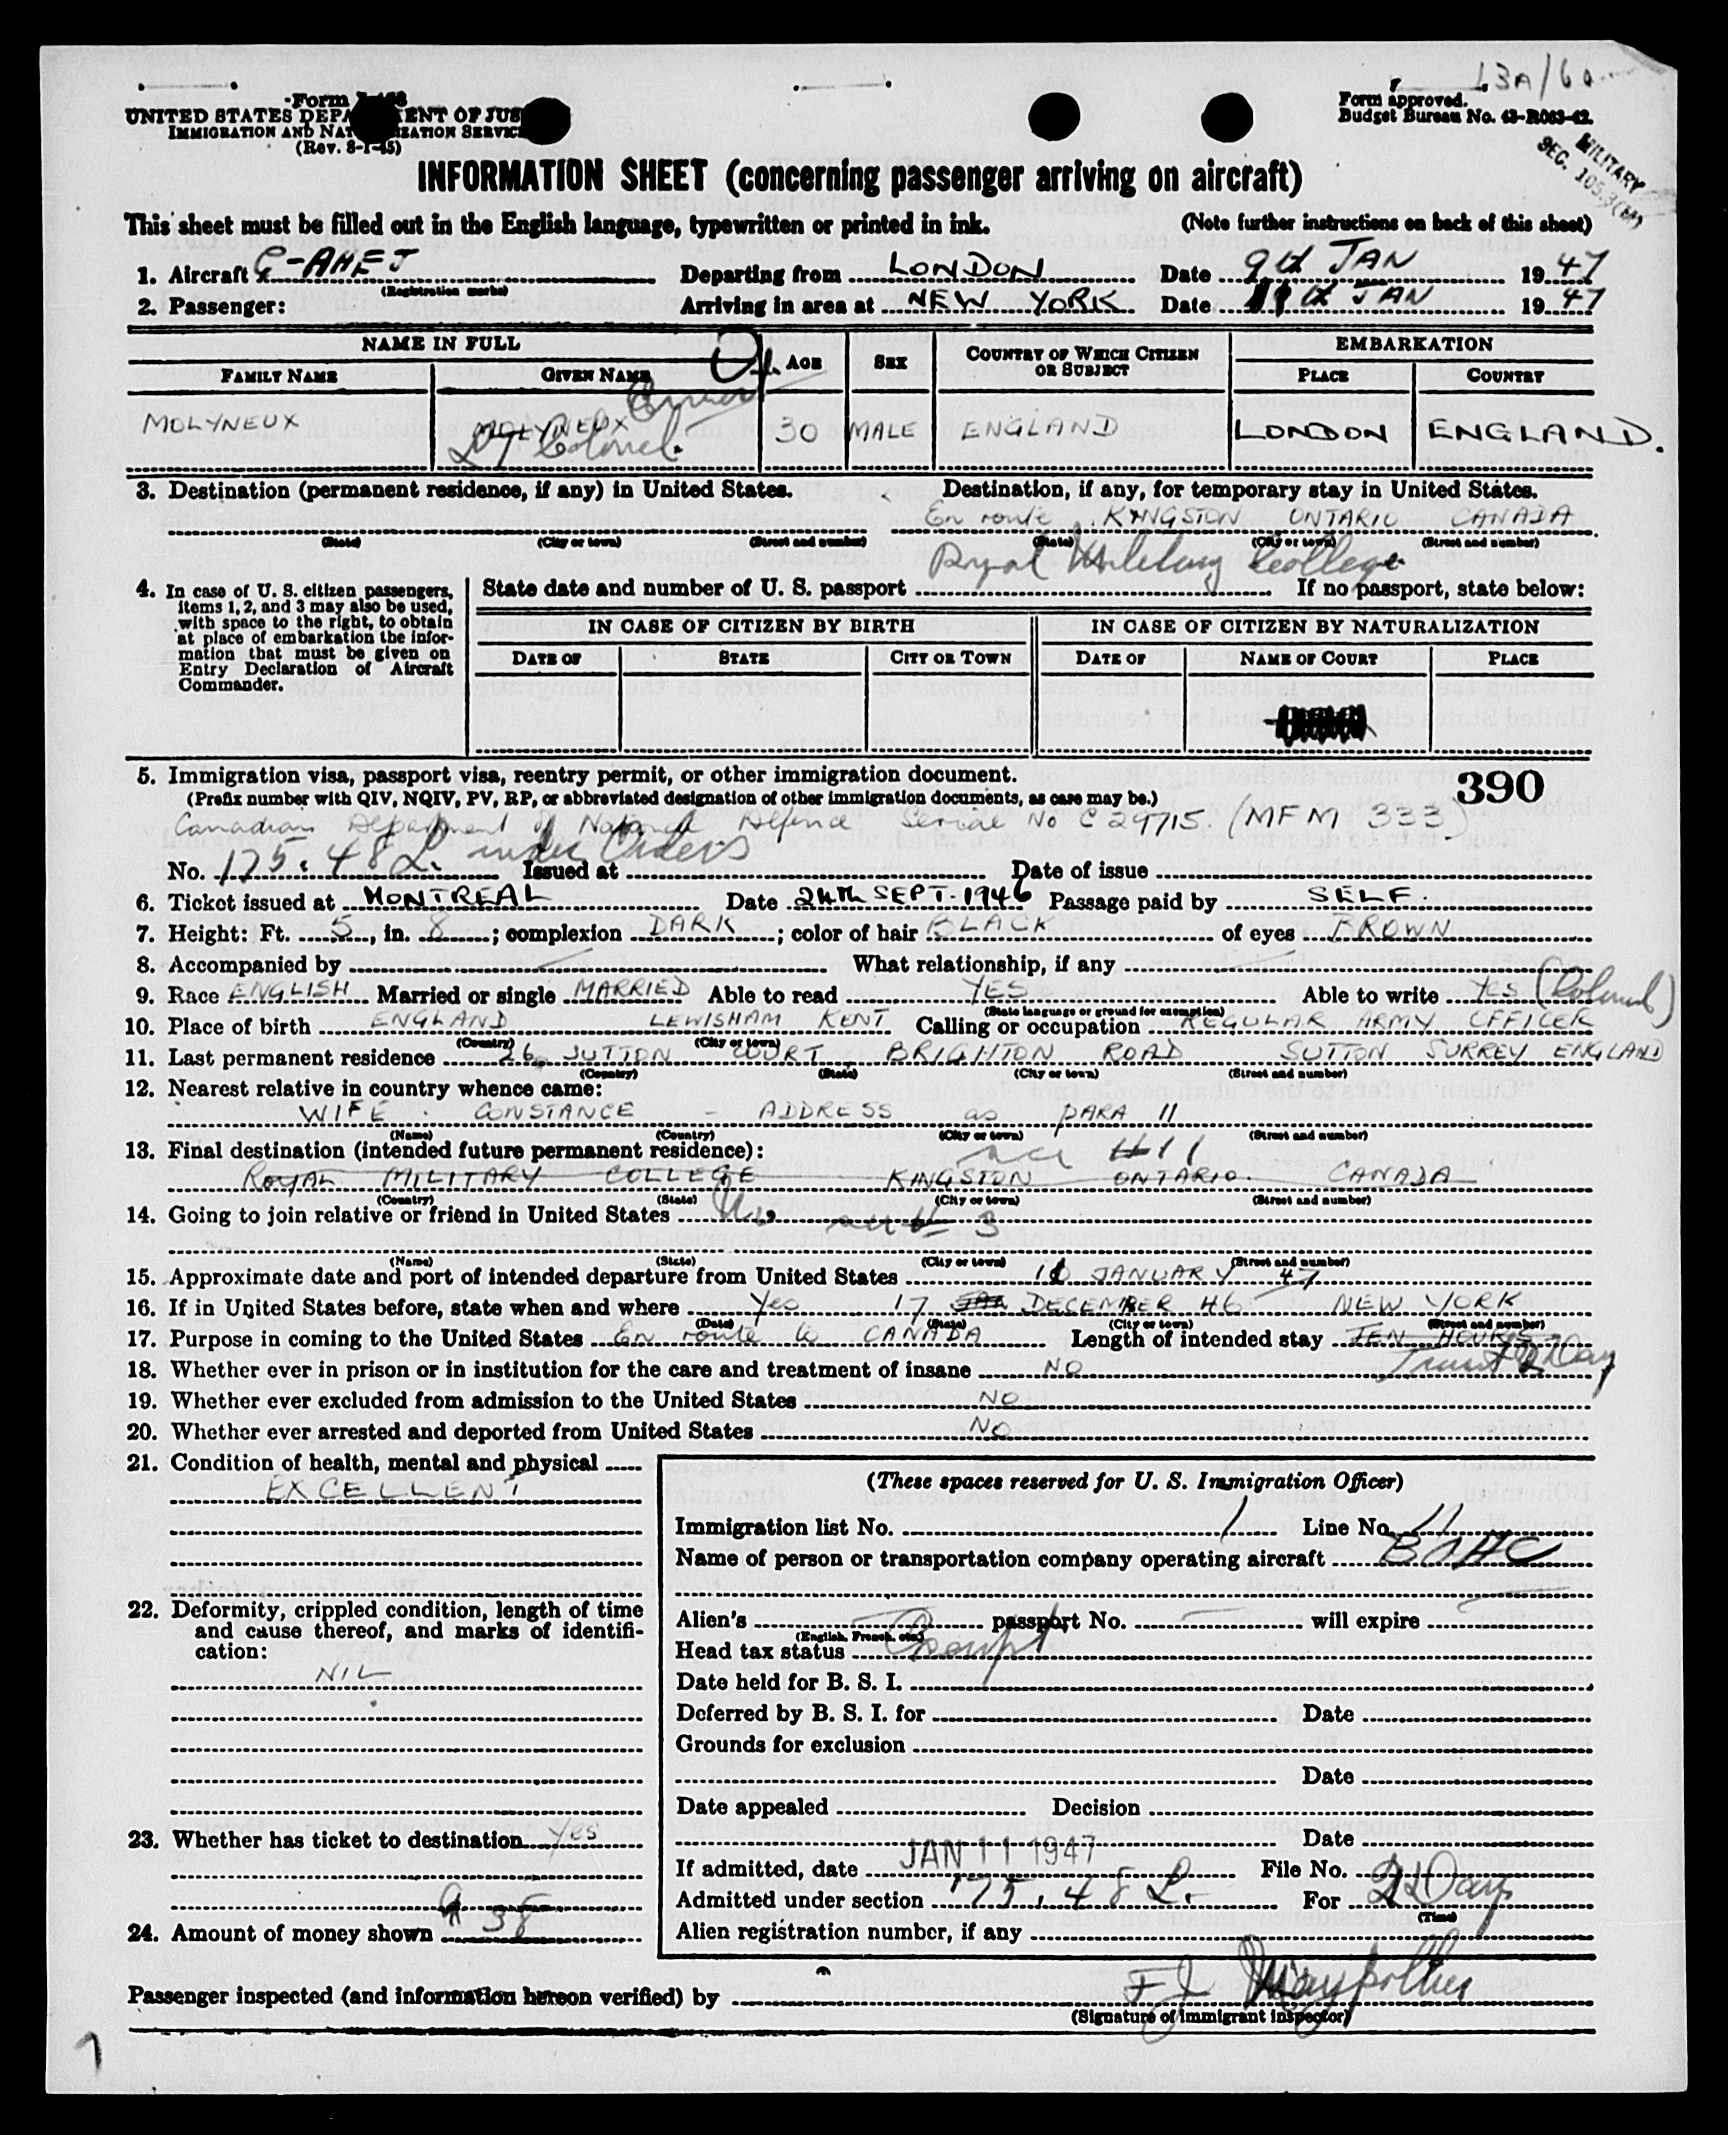 L3A/60
Form
Form approved.
UNITED STATES DEPA ENT OF JUS
Budget Bureau No. 43-R083-42.
IMMIGRATION AND NAT IZATION SERVICE
(Rev. 8-1-45)
MILITARY
SEC. 105.3(M)
INFORMATION SHEET (concerning passenger arriving on aircraft)
This sheet must be filled out in the English language, typewritten or printed in ink. (Note further instructions on back of this sheet)
1. Aircraft G-AHEJ Departing from LONDON Date 9th JAN 1947
(Registration marks)
2. Passenger: Arriving in area at NEW YORK Date 11th JAN 1947
NAME IN FULL AGE SEX COUNTRY OF WHICH CITIZEN OR SUBJECT EMBARKATION
FAMILY NAME GIVEN NAME PLACE COUNTRY
MOLYNEUX MOLYNEUX 30 MALE ENGLAND LONDON ENGLAND.
Lt Colonel.
3. Destination (permanent residence, if any) in United States. Destination, if any, for temporary stay in United States.
En route KINGSTON ONTARIO CANADA
(State) (City or town) (Street and number) (State) (City or town) (Street and number)
Royal Military College
4. In case of U. S. citizen passengers, items 1, 2, and 3 may also be used, with space to the right, to obtain at place of embarkation the information that must be given on Entry Declaration of Aircraft Commander.
State date and number of U. S. passport If no passport, state below:
IN CASE OF CITIZEN BY BIRTH IN CASE OF CITIZEN BY NATURALIZATION
DATE OF STATE CITY OR TOWN DATE OF NAME OF COURT PLACE
5. Immigration visa, passport visa, reentry permit, or other immigration document. 390
(Prefix number with QIV, NQIV, PV, RP, or abbreviated designation of other immigration documents, as case may be.)
Canadian Department of National Defence Serial No C 29715. (MFM 333)
under Orders
No. 175.48L. Issued at Date of issue
6. Ticket issued at MONTREAL Date 24th SEPT. 1946 Passage paid by SELF.
7. Height: Ft. 5, in. 8; complexion DARK; color of hair BLACK of eyes BROWN
8. Accompanied by What relationship, if any
9. Race ENGLISH Married or single MARRIED Able to read YES Able to write YES (Colonel)
(State language or ground for exemption)
10. Place of birth ENGLAND LEWISHAM KENT Calling or occupation REGULAR ARMY OFFICER
(Country) (City or town)
11. Last permanent residence 26 SUTTON COURT BRIGHTON ROAD SUTTON SURREY ENGLAND
(Country) (State) (City or town) (Street and number)
12. Nearest relative in country whence came:
WIFE. CONSTANCE - ADDRESS as PARA 11
(Name) (Country) (City or town) (Street and number)
13. Final destination (intended future permanent residence): #11
ROYAL MILITARY COLLEGE KINGSTON ONTARIO. CANADA
(Country) (State) (City or town) (Street and number)
14. Going to join relative or friend in United States No 3
(Name) (State) (City or town) (Street and number)
15. Approximate date and port of intended departure from United States JANUARY 47
16. If in United States before, state when and where Yes 17 DECEMBER 46 NEW YORK
(Date) (State) (City or town) (Street and number)
17. Purpose in coming to the United States En route to CANADA Length of intended stay TEN HOURS
Transit 2 Day
18. Whether ever in prison or in institution for the care and treatment of insane NO
19. Whether ever excluded from admission to the United States NO
20. Whether ever arrested and deported from United States NO
21. Condition of health, mental and physical
EXCELLENT
22. Deformity, crippled condition, length of time and cause thereof, and marks of identification:
NIL
23. Whether has ticket to destination Yes
24. Amount of money shown 38
(These spaces reserved for U. S. Immigration Officer)
Immigration list No. 1 Line No. 11
Name of person or transportation company operating aircraft BOAC
Alien's passport No. will expire
(English, French, etc.)
Head tax status Exempt
Date held for B. S. I.
Deferred by B. S. I. for Date
Grounds for exclusion
Date
Date appealed Decision
Date
If admitted, date JAN 11 1947 File No.
Admitted under section 175.48L. For 2 Days
(Time)
Alien registration number, if any
Passenger inspected (and information hereon verified) by
(Signature of immigrant inspector)